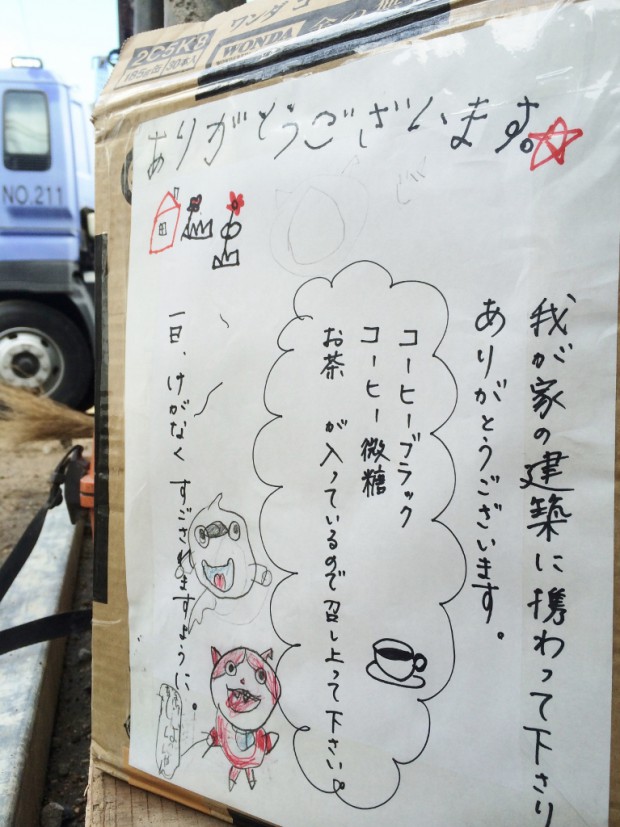 2C5KB
185g缶 30本入
ワンダ
WONDA
NO.211
ありがとうございます。
じ
我が家の建築に携わって下さり
ありがとうございます。
コーヒーブラック
コーヒー微糖
お茶 が入っているので召し上って下さい。
一日、けがなく すごされますように。